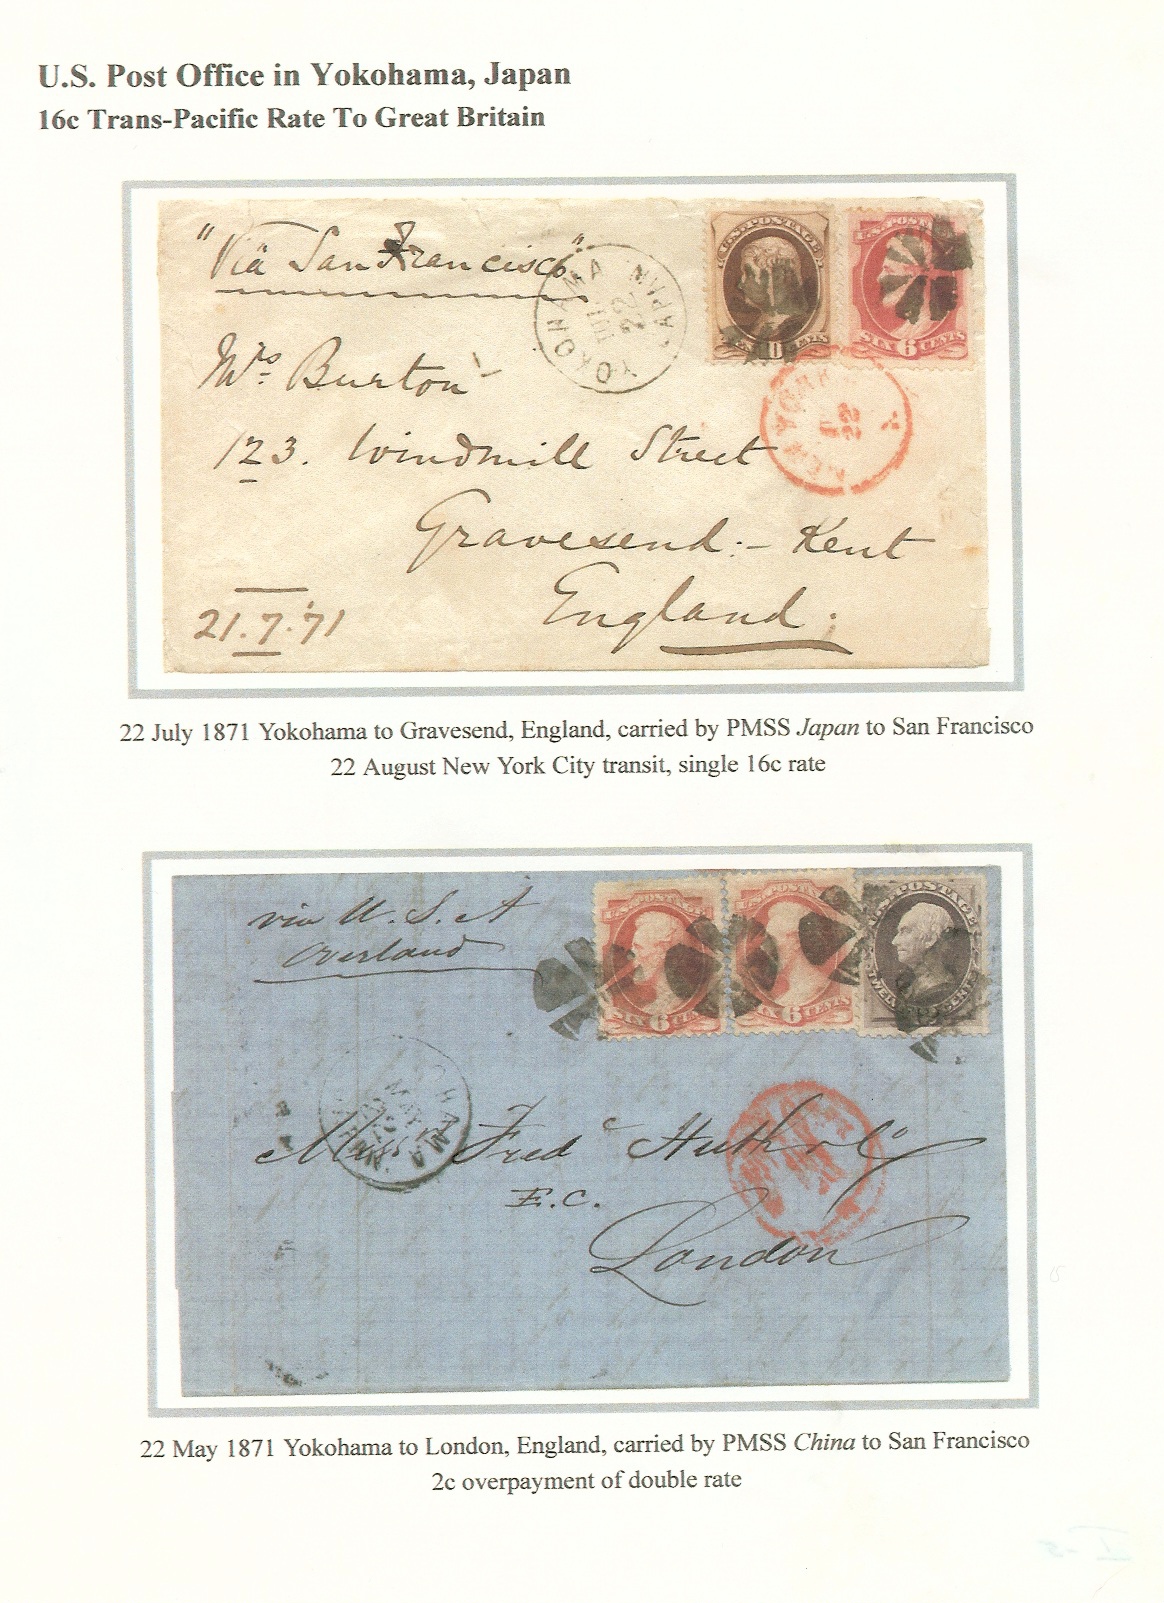 U.S. Post Office in Yokohama, Japan
16c Trans-Pacific Rate To Great Britain
"Via San Francisco"
YOKOHAMA JAPAN
JUL
22
U.S. POSTAGE
10 CENTS
U.S. POSTAGE
SIX 6 CENTS
NEW YORK
22
Mrs. Burton
123. Windmill Street
Gravesend:- Kent
England.
21.7.'71
22 July 1871 Yokohama to Gravesend, England, carried by PMSS Japan to San Francisco
22 August New York City transit, single 16c rate
via U.S.A
overland
U.S. POSTAGE
SIX 6 CENTS
U.S. POSTAGE
SIX 6 CENTS
U.S. POSTAGE
TWELVE CENTS
MAY
22
Fred
E.C.
London
22 May 1871 Yokohama to London, England, carried by PMSS China to San Francisco
2c overpayment of double rate